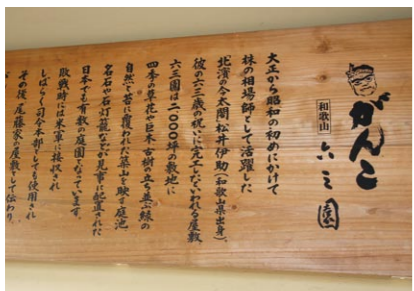 がんこ
和歌山
六三園
大正から昭和の初めにかけて
株の相場師として活躍した
北濱の今太閤、松井伊助(和歌山県出身)、
彼の六三歳の祝いに完工したといわれる屋敷
六三園は二〇〇〇坪の敷地に
四季の草花や巨木、古樹の立ち並ぶ緑の
自然と苔に覆われた築山を映す庭池、
名石や石灯籠などが見事に配置された
日本でも有数の庭園になっています。
敗戦時には米軍に接収され
しばらく司令本部としても使用され
その後、尾藤家の屋敷として伝わり、